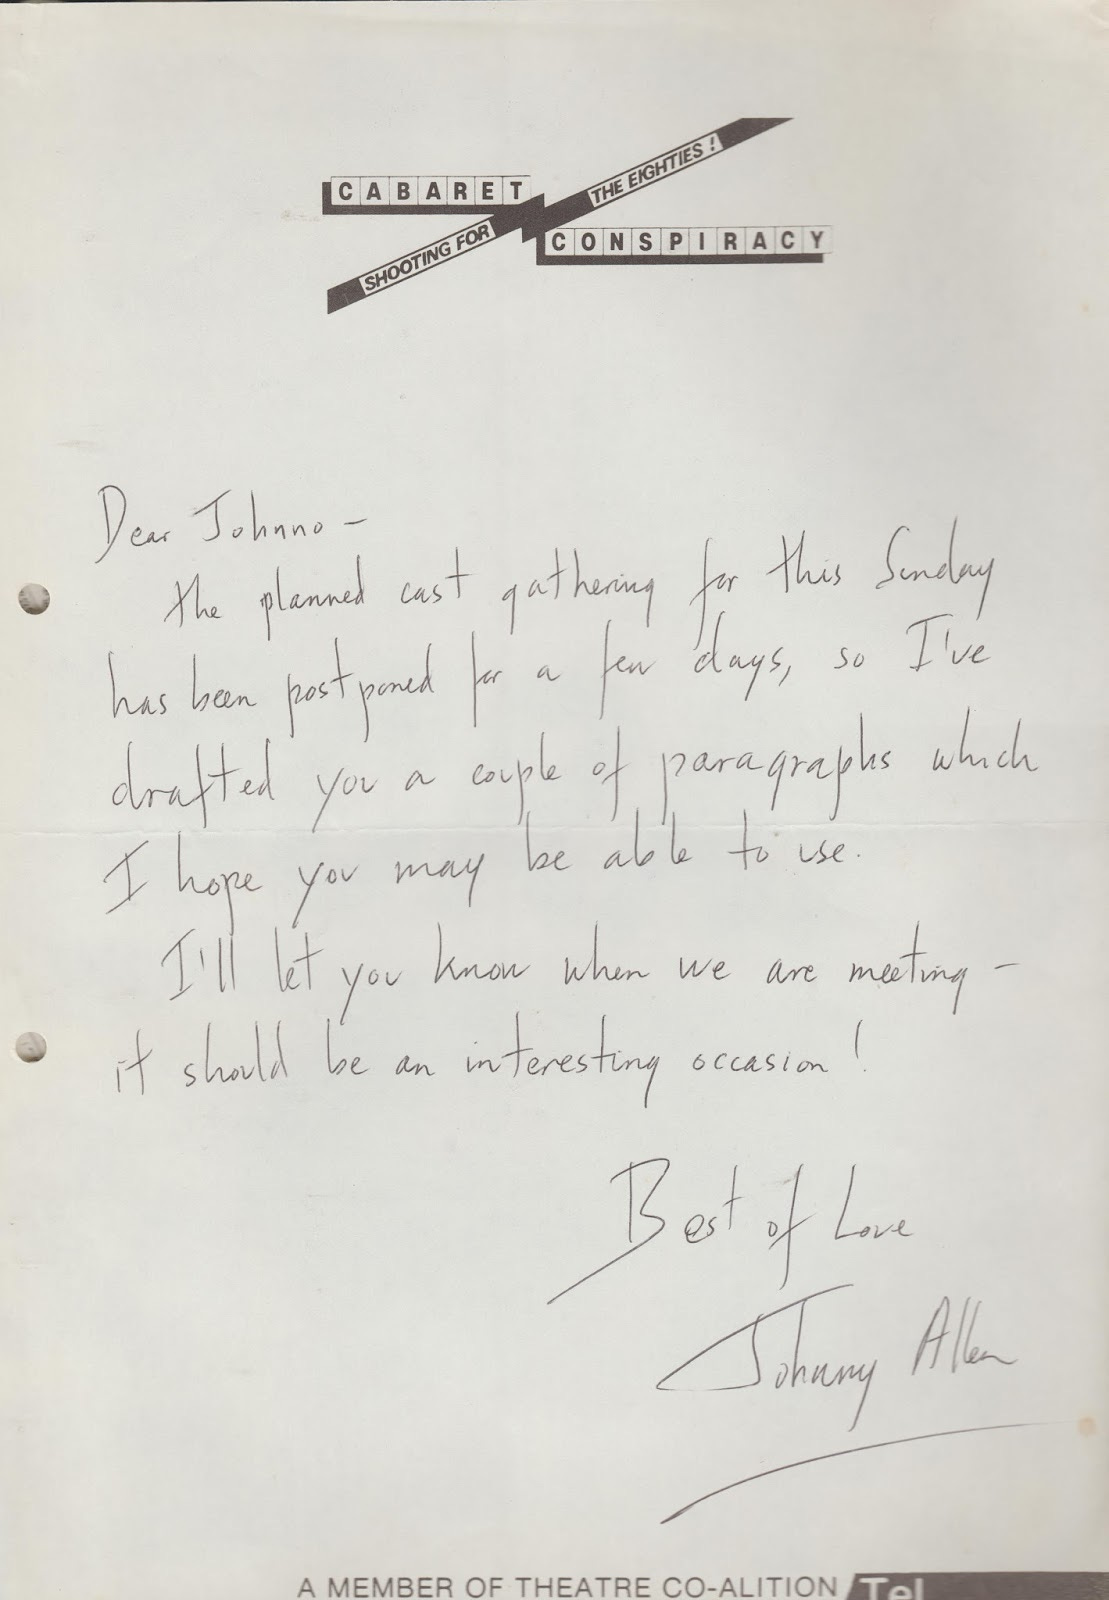 CABARET
THE EIGHTIES!
SHOOTING FOR
CONSPIRACY
Dear Johnno -
the planned cast gathering for this Sunday
has been postponed for a few days, so I've
drafted you a couple of paragraphs which
I hope you may be able to use.
I'll let you know when we are meeting -
it should be an interesting occasion!
Best of Love
Johnny Allen
A MEMBER OF THEATRE CO-ALITION Tel